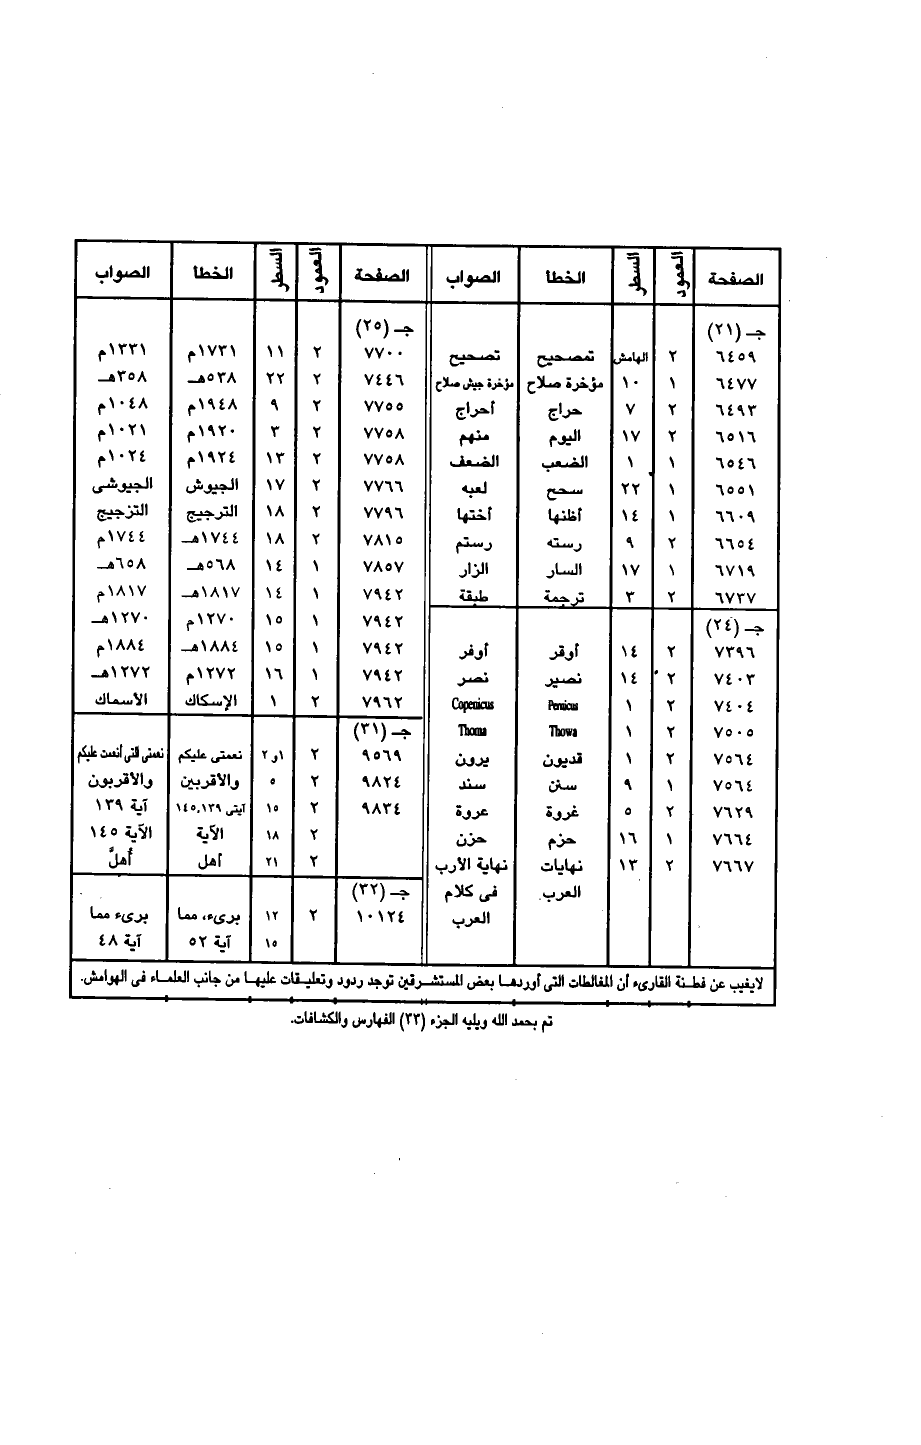 الصفحة العمود السطر الخطأ الصواب
جـ (٢١)
٦٤٥٩ ٢ الهامش تمصحيح تصحيح
٦٤٧٧ ١ ١٠ مؤخرة صلاح مؤخرة جيش صلاح
٦٤٩٣ ٢ ٧ حراج أحراج
٦٥١٦ ٢ ١٧ اليوم منهم
٦٥٤٦ ١ ١ الضعب الضعف
٦٥٥١ ١ ٢٢ سحح لعبه
٦٦٠٩ ١ ١٤ أظنها أختها
٦٦٥٤ ٢ ٩ رسته رستم
٦٧١٩ ١ ١٧ السار الزار
٦٧٣٧ ٢ ٣ ترجمة طبقة
جـ (٢٤)
٧٣٩٦ ٢ ١٤ أوقر أوفر
٧٤٠٣ ٢ ١٤ نصير نصر
٧٤٠٤ ٢ ١ Pernicus Copenicus
٧٥٠٥ ٢ ١ Thowa Thoma
٧٥٦٤ ٢ ١ قديون يرون
٧٥٦٤ ١ ٩ سنن سند
٧٦٢٩ ٢ ٥ غروة عروة
٧٦٦٤ ١ ١٦ حزم حزن
٧٦٦٧ ٢ ١٣ نهايات نهاية الأرب
العرب فى كلام
العرب
الصفحة العمود السطر الخطأ الصواب
جـ (٢٥)
٧٧٠٠ ٢ ١١ ١٧٣١م ١٣٣١م
٧٤٤٦ ٢ ٢٢ ٥٣٨هـ ٣٥٨هـ
٧٧٥٥ ٢ ٩ ١٩٤٨م ١٠٤٨م
٧٧٥٨ ٢ ٣ ١٩٢٠م ١٠٢١م
٧٧٥٨ ٢ ١٣ ١٩٢٤م ١٠٢٤م
٧٧٦٦ ٢ ١٧ الجيوش الجيوشى
٧٧٩٦ ٢ ١٨ الترجيج التزجيج
٧٨١٥ ٢ ١٨ ١٧٤٤هـ ١٧٤٤م
٧٨٥٧ ١ ١٤ ٥٦٨هـ ٦٥٨هـ
٧٩٤٢ ١ ١٤ ١٨١٧هـ ١٨١٧م
٧٩٤٢ ١ ١٥ ١٢٧٠م ١٢٧٠هـ
٧٩٤٢ ١ ١٥ ١٨٨٤هـ ١٨٨٤م
٧٩٤٢ ١ ١٦ ١٢٧٢م ١٢٧٢هـ
٧٩٦٢ ٢ ١ الإسكاك الأسماك
جـ (٣١)
٩٥٦٩ ٢ ١و٢ نعمتى عليكم نعمتى التى أنعمت عليكم
٩٨٢٤ ٢ ٥ والأقربين والأقربون
٩٨٣٤ ٢ ١٥ آيتى ١٤٥،١٣٩ آية ١٣٩
٢ ١٨ الآية الآية ١٤٥
٢ ٢١ أهل أُهلَّ
جـ (٣٢)
١٠١٢٤ ٢ ١٢ برىء، مما برىء مما
١٥ آية ٥٢ آية ٤٨
لايغيب عن فطنة القارىء أن المغالطات التى أوردها بعض المستشرقين توجد ردود وتعليقات عليها من جانب العلماء فى الهوامش.
تم بحمد الله ويليه الجزء (٣٣) الفهارس والكشافات.